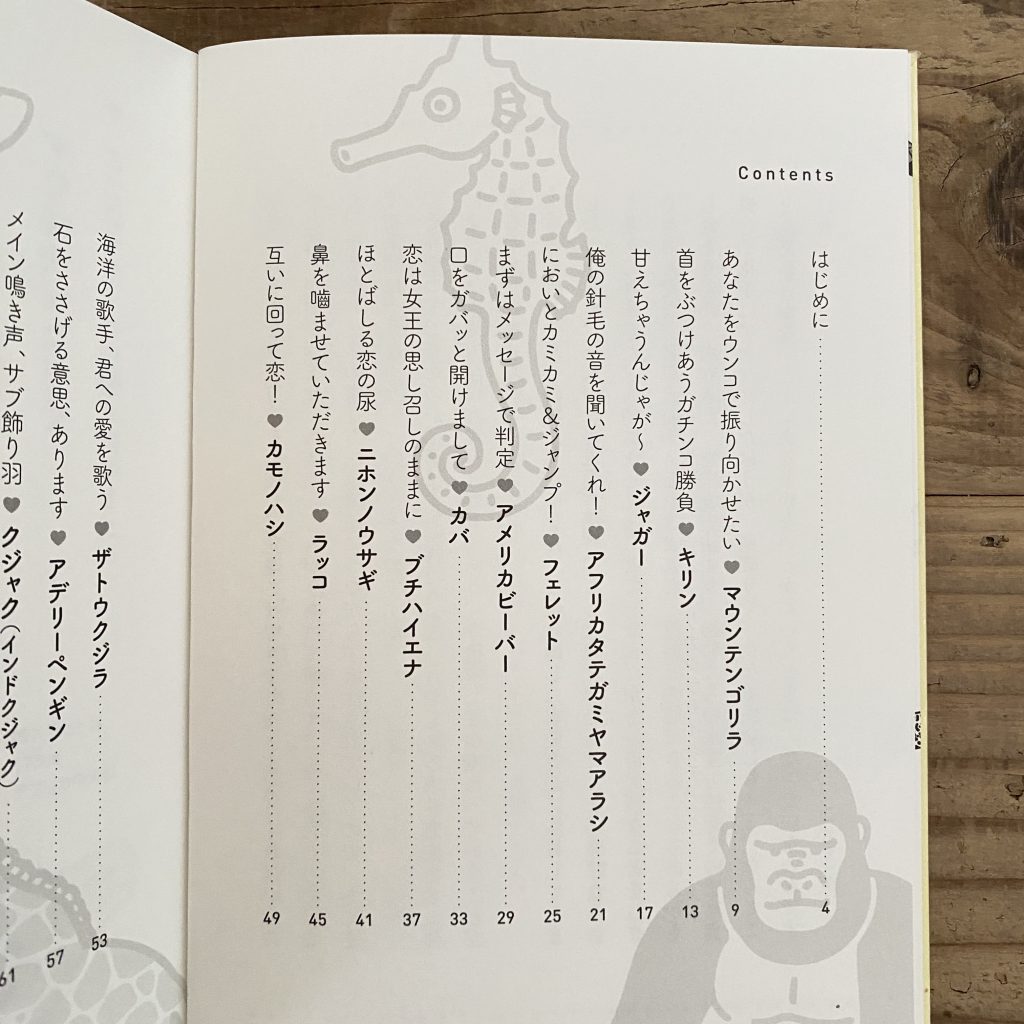 Contents
はじめに 4
あなたをウンコで振り向かせたい♥マウンテンゴリラ 9
首をぶつけあうガチンコ勝負♥キリン 13
甘えちゃうんじゃが〜♥ジャガー 17
俺の針毛の音を聞いてくれ！♥アフリカタテガミヤマアラシ 21
においとカミカミ&ジャンプ！♥フェレット 25
まずはメッセージで判定♥アメリカビーバー 29
口をガバッと開けまして♥カバ 33
恋は女王の思し召しのままに♥ブチハイエナ 37
ほとばしる恋の尿♥ニホンノウサギ 41
鼻を嚙ませていただきます♥ラッコ 45
互いに回って恋！♥カモノハシ 49
海洋の歌手、君への愛を歌う♥ザトウクジラ 53
石をささげる意思、あります♥アデリーペンギン 57
メイン鳴き声、サブ飾り羽♥クジャク（インドクジャク） 61